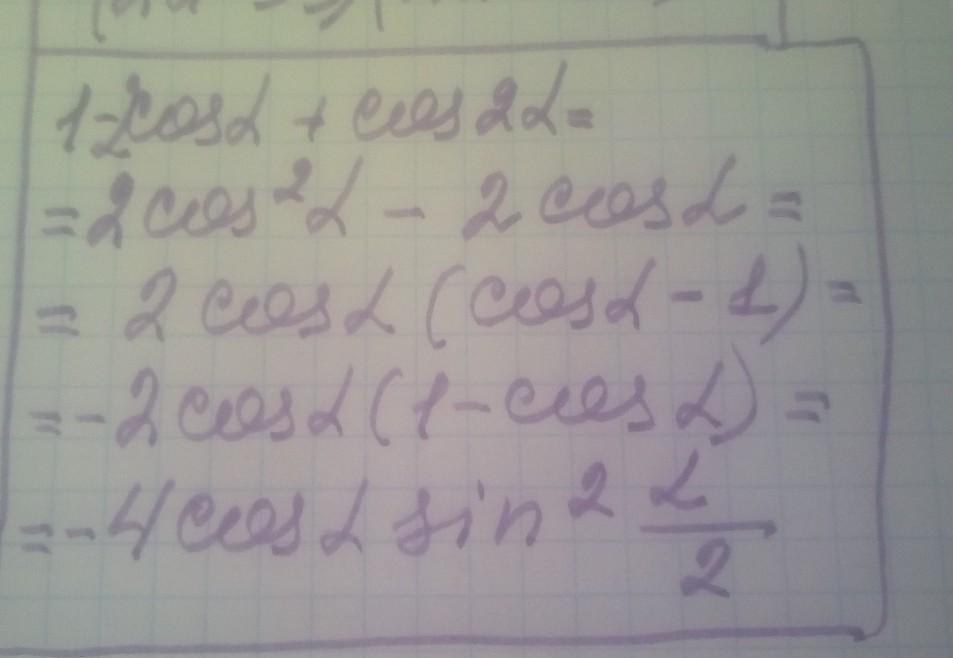 1-2cosα + cos2α=
=2cos²α - 2cosα=
= 2cosα(cosα-1)=
=-2cosα(1-cosα)=
=-4cosα sin² α/2